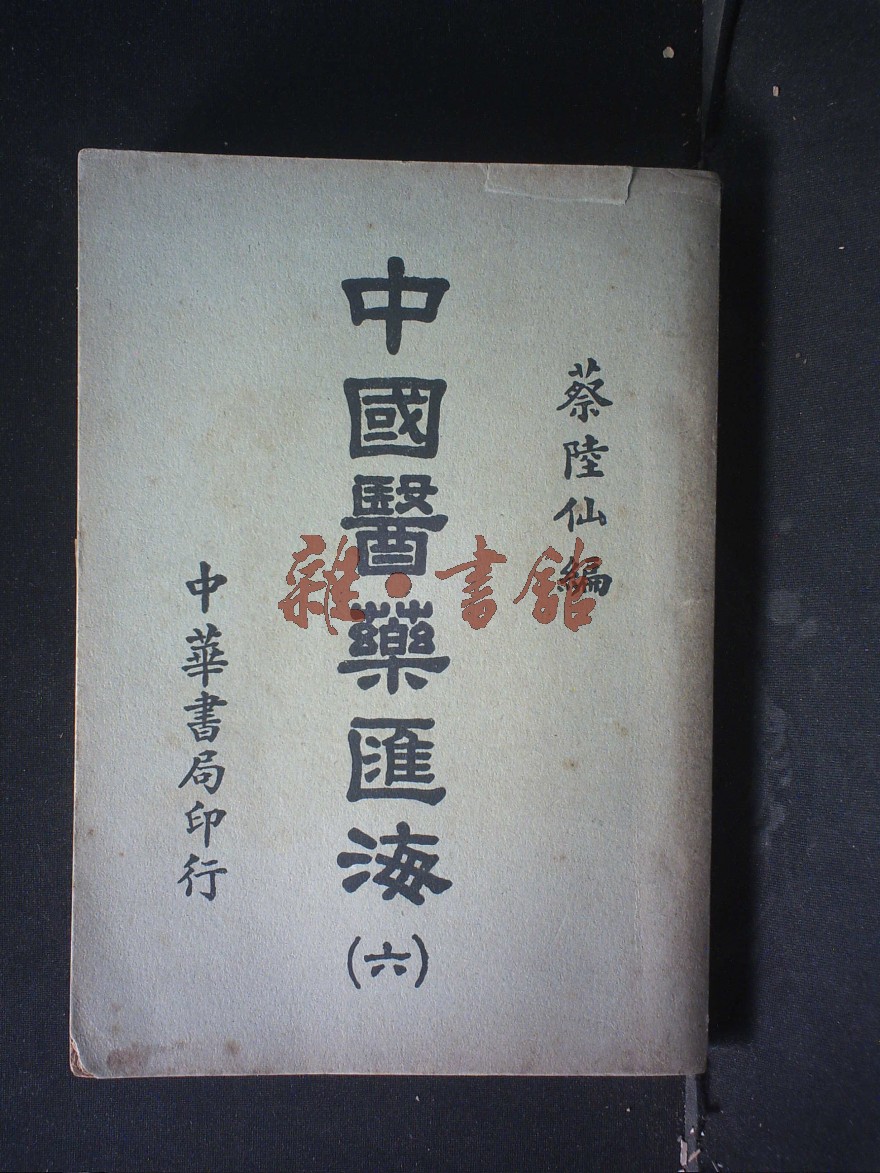 蔡陸仙編
中國醫藥匯海
(六)
中華書局印行
雜·書館